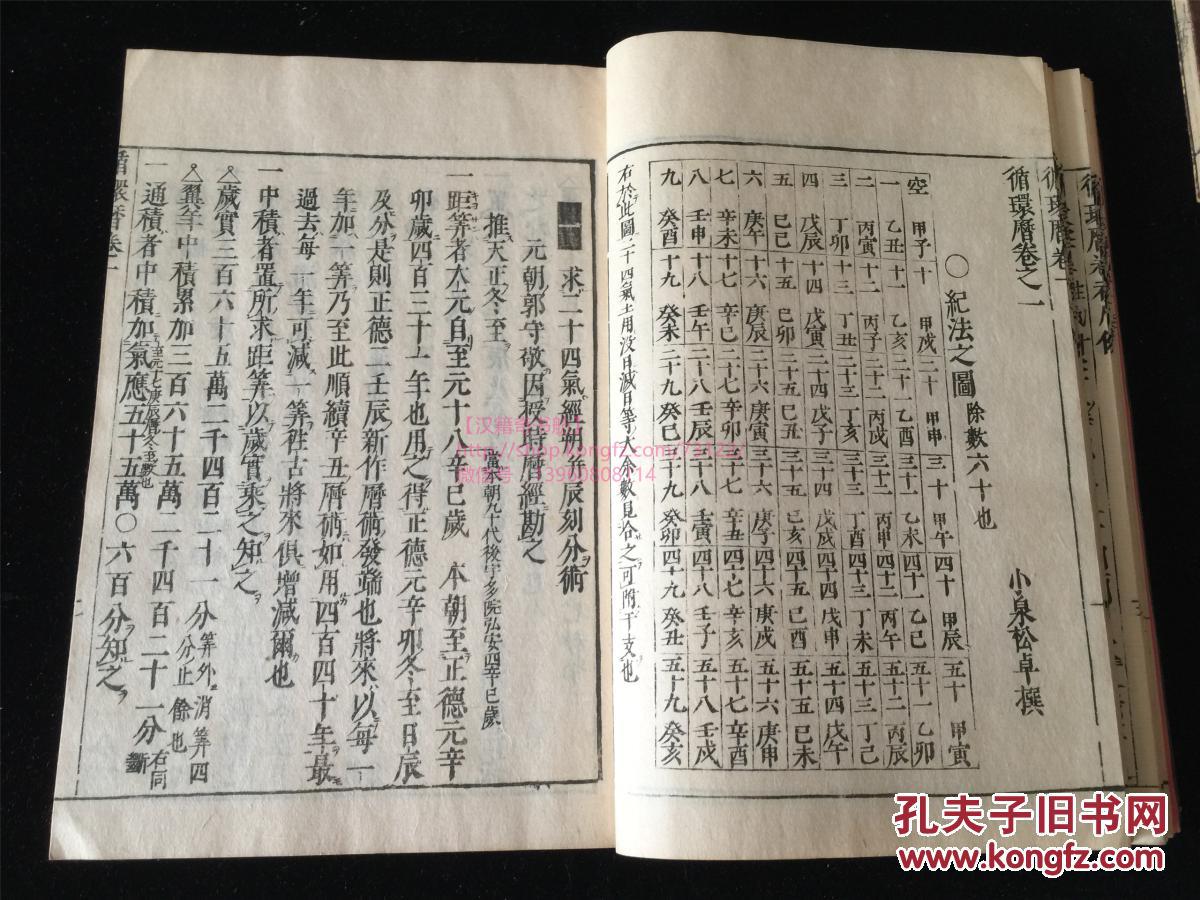 循環曆卷之一
小泉松卓撰
○紀法之圖 除數六十也
空 甲子 十 甲戌 二十 甲申 三十 甲午 四十 甲辰 五十 甲寅
一 乙丑 十一 乙亥 二十一 乙酉 三十一 乙未 四十一 乙巳 五十一 乙卯
二 丙寅 十二 丙子 二十二 丙戌 三十二 丙申 四十二 丙午 五十二 丙辰
三 丁卯 十三 丁丑 二十三 丁亥 三十三 丁酉 四十三 丁未 五十三 丁巳
四 戊辰 十四 戊寅 二十四 戊子 三十四 戊戌 四十四 戊申 五十四 戊午
五 己巳 十五 己卯 二十五 己丑 三十五 己亥 四十五 己酉 五十五 己未
六 庚午 十六 庚辰 二十六 庚寅 三十六 庚子 四十六 庚戌 五十六 庚申
七 辛未 十七 辛巳 二十七 辛卯 三十七 辛丑 四十七 辛亥 五十七 辛酉
八 壬申 十八 壬午 二十八 壬辰 三十八 壬寅 四十八 壬子 五十八 壬戌
九 癸酉 十九 癸未 二十九 癸巳 三十九 癸卯 四十九 癸丑 五十九 癸亥
右於此圖二十四氣土用没日滅日等大余數見合之可附干支也
求二十四氣經朔弦辰刻分術
元朝郭守敬因授時曆經勘之
推天正冬至
一 距筭者大元自至元十八辛巳歲 當本朝九十代後宇多院弘安四辛巳歲 本朝至正德元辛
卯歲四百三十一年也用之得正德元辛卯冬至日辰
及分是則正德二壬辰新作曆術發端也將來以每一
年加一筭乃至此順續辛丑曆術如用四百四十年最
過去每一年可減一筭往古將來俱增減爾也
一 中積者置所求距筭以歲實乘之知之
歲實三百六十五萬二千四百二十一分 筭外消筭四分止餘也
翼年中積累加三百六十五萬二千四百二十一分 右同斷
一 通積者中積加氣應五十五萬○六百分知之
循環曆卷一
【汉籍奇书形】
http://shop.kongfz.com/73122/
微信号 13960808214
孔夫子旧书网
www.kongfz.com